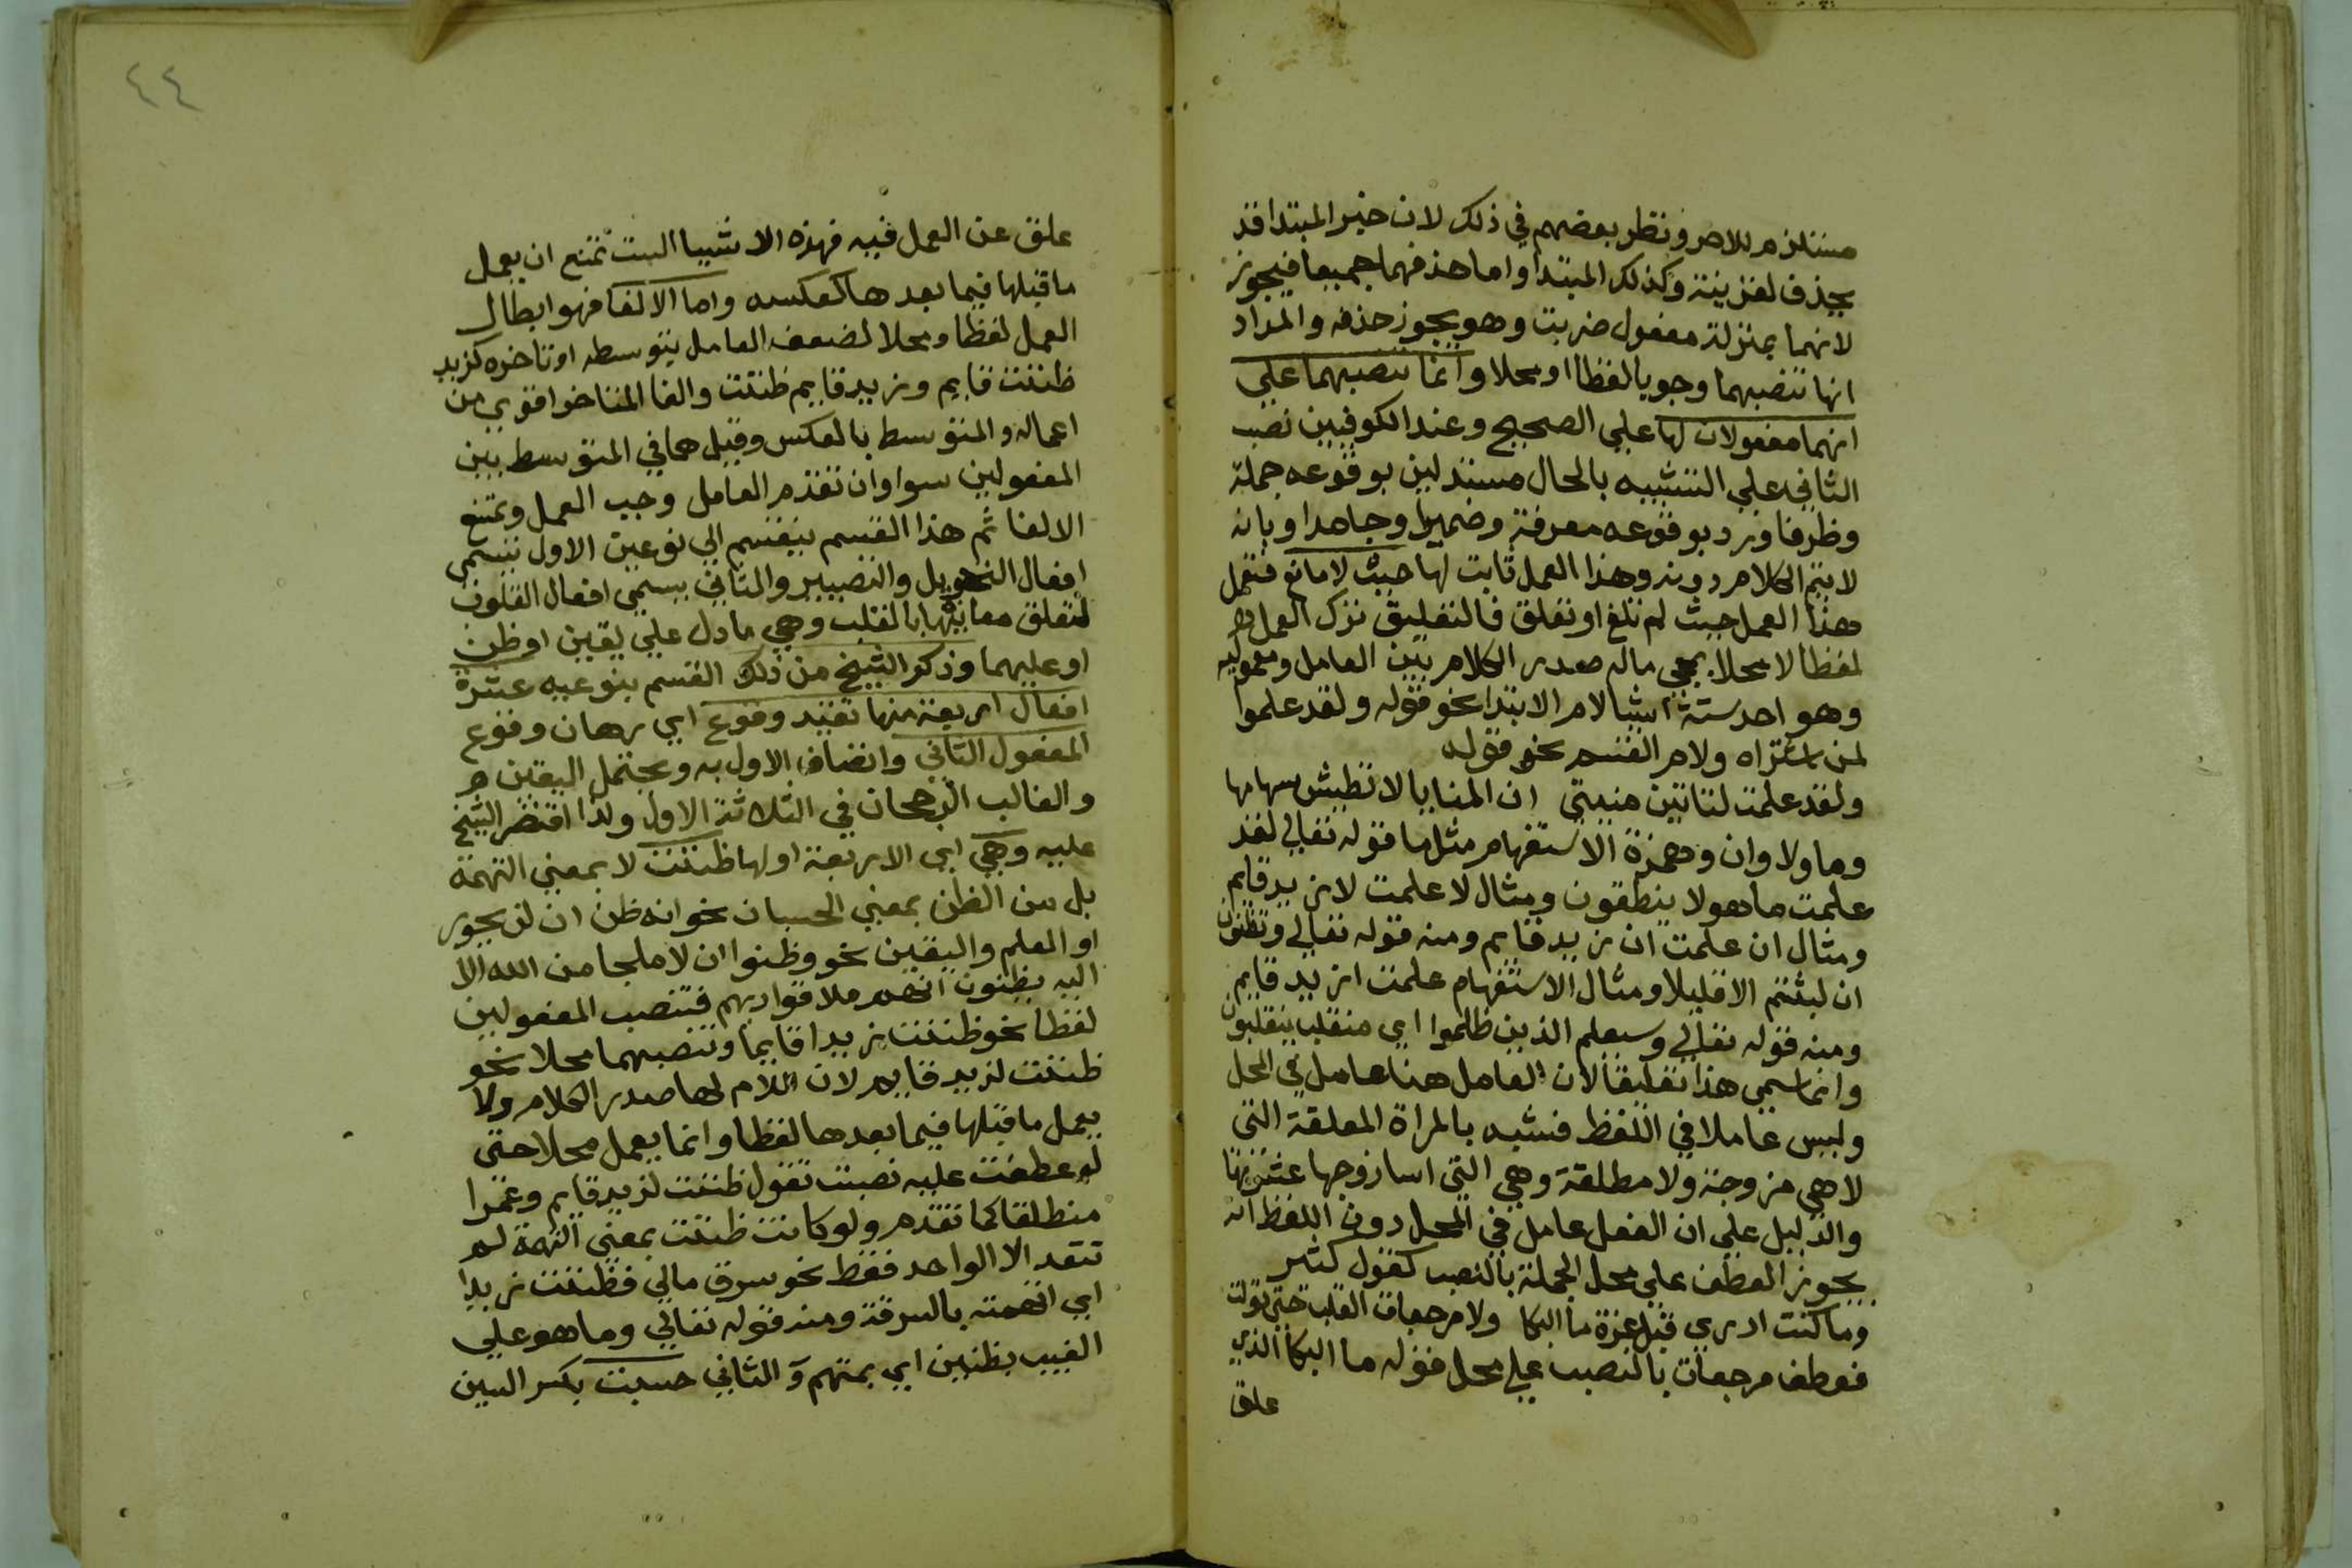 مستلزم للامر ونظر بعضهم في ذلك لان خبر المبتدا قد
يحذف لقرينة وكذلك المبتدا واما حذفهما جميعا فيجوز
لانهما بمنزلة مفعول ضربت وهو يجوز حذفه والمراد
انها تنصبهما وجوبا لفظا او محلا وانما تنصبهما على
انهما مفعولان لها علي الصحيح وعند الكوفيين نصب
الثاني علي التشبيه بالحال مستدلين بوقوعه جملة
وظرفا ورد بوقوعه معرفة وضميرا وجامدا وبانه
لا يتم الكلام دونه وهذا العمل ثابت لها حيث لا مانع فتعمل
هذا العمل حيث لم تلغ او تعلق فالتعليق ترك العمل
لفظا لا محلا بمجي ماله صدر الكلام بين العامل ومعموليه
وهو احد ستة اشيا لام الابتدا نحو قوله ولقد علموا
لمن اشتراه ولام القسم نحو قوله
ولقد علمت لتاتين منيتي ان المنايا لا تطيش سهامها
وما ولا وان وهمزة الاستفهام مثل ما قوله تعالي لقد
علمت ما هولا ينطقون ومثال لا علمت لا زيد قايم
ومثال ان علمت ان زيد قايم ومنه قوله تعالي وتظنون
ان لبثتم الا قليلا ومثال الاستفهام علمت ازيد قايم
ومنه قوله تعالي وسيعلم الذين ظلموا اي منقلب ينقلبون
وانما سمي هذا تعليقا لان العامل هنا عامل في المحل
وليس عاملا في اللفظ فشبه بالمراة المعلقة التي
لا هي مزوجة ولا مطلقة وهي التي اسا زوجها عشرتها
والدليل علي ان الفعل عامل في المحل دون اللفظ انه
يجوز العطف علي محل الجملة بالنصب كقول كثير
وما كنت ادري قبل عزة ما البكا ولا مرجعات القلب حتي تولت
فعطف مرجعات بالنصب علي محل قوله ما البكا الذي
علق
٤٤
علق عن العمل فيه فهذه الاشيا الست تمنع ان يعمل
ما قبلها فيما بعدها كعكسه واما الالغا فهو ابطال
العمل لفظا ومحلا لضعف العامل بتوسطه او تاخره كزيد
ظننت قايم وزيد قايم ظننت والغا المتاخر اقوي من
اعماله والمتوسط بالعكس وقيل هما في المتوسط بين
المفعولين سوا وان تقدم العامل وجب العمل ويمتنع
الالغا ثم هذا القسم ينقسم الي نوعين الاول يسمى
افعال التحويل والتصيير والثاني يسمى افعال القلوب
لتعلق معانيها بالقلب وهي ما دل علي يقين او ظن
او عليهما وذكر الشيخ من ذلك القسم بنوعيه عشرة
افعال اربعة منها تفيد وقوع اي رجحان وقوع
المفعول الثاني واتصاف الاول به ويحتمل اليقين
والغالب الرجحان في الثلاثة الاول ولذا اقتصر الشيخ
عليه وهي اي الاربعة اولها ظننت لا بمعني التهمة
بل من الظن بمعني الحسبان نحو انه ظن ان لن يحور
او العلم واليقين نحو وظنوا ان لا ملجا من الله الا
اليه يظنون انهم ملاقوا ربهم فتنصب المفعولين
لفظا نحو ظننت زيدا قايما وتنصبهما محلا نحو
ظننت لزيد قايم لان اللام لها صدر الكلام ولا
يعمل ما قبلها فيما بعدها لفظا وانما يعمل محلا حتى
لو عطفت عليه نصبت تقول ظننت لزيد قايم وعمرا
منطلقا كما تقدم ولو كانت ظننت بمعني التهمة لم
تتعد الا الواحد فقط نحو سرق مالي فظننت زيدا
اي اتهمته بالسرقة ومنه قوله تعالي وما هو علي
الغيب بظنين اي بمتهم والثاني حسبت بكسر السين